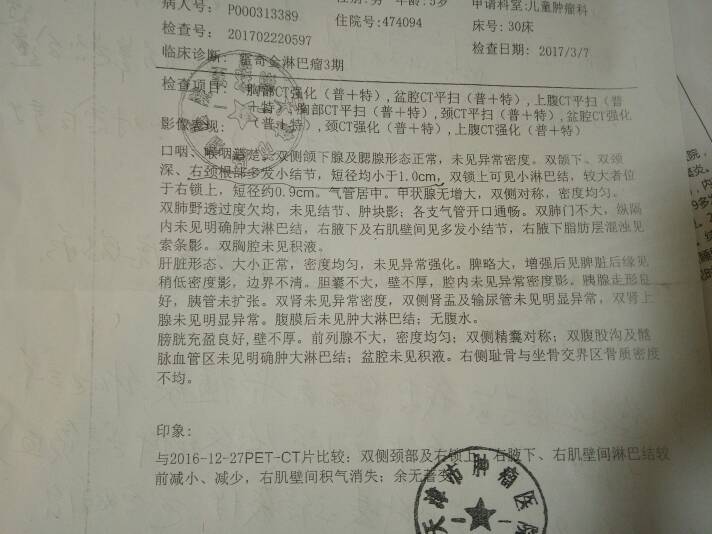 病人号: P000313389 性别:男 年龄:5岁 申请科室:儿童肿瘤科
检查号: 201702220597 住院号:474094 床号: 30床
临床诊断: 霍奇金淋巴瘤3期 检查日期: 2017/3/7
检查项目: 胸部CT强化（普十特）,盆腔CT平扫（普十特）,上腹CT平扫（普
十特）,胸部CT平扫（普十特）,颈CT平扫（普十特）,盆腔CT强化
影像表现: （普十特）,颈CT强化（普十特）,上腹CT强化（普十特）
口咽、喉咽清楚。双侧颌下腺及腮腺形态正常，未见异常密度。双颌下、双颈
深、右颈根部多发小结节，短径均小于1.0cm，双锁上可见小淋巴结，较大者位
于右锁上，短径约0.9cm。气管居中。甲状腺无增大，双侧对称，密度均匀。
双肺野透过度欠均，未见结节、肿块影；各支气管开口通畅。双肺门不大，纵隔
内未见明确肿大淋巴结，右腋下及右肌壁间见多发小结节，右腋下脂肪层混浊见
索条影。双胸腔未见积液。
肝脏形态、大小正常，密度均匀，未见异常强化。脾略大，增强后见脾脏后缘见
稍低密度影，边界不清。胆囊不大，壁不厚，腔内未见异常密度影。胰腺走形良
好，胰管未扩张。双肾未见异常密度，双侧肾盂及输尿管未见明显异常，双肾上
腺未见明显异常。腹膜后未见肿大淋巴结；无腹水。
膀胱充盈良好,壁不厚。前列腺不大，密度均匀；双侧精囊对称；双腹股沟及髂
脉血管区未见明确肿大淋巴结；盆腔未见积液。右侧耻骨与坐骨交界区骨质密度
不均。
印象:
与2016-12-27PET-CT片比较：双侧颈部及右锁上、右腋下、右肌壁间淋巴结较
前减小、减少，右肌壁间积气消失；余无著变
天津市肿瘤医院